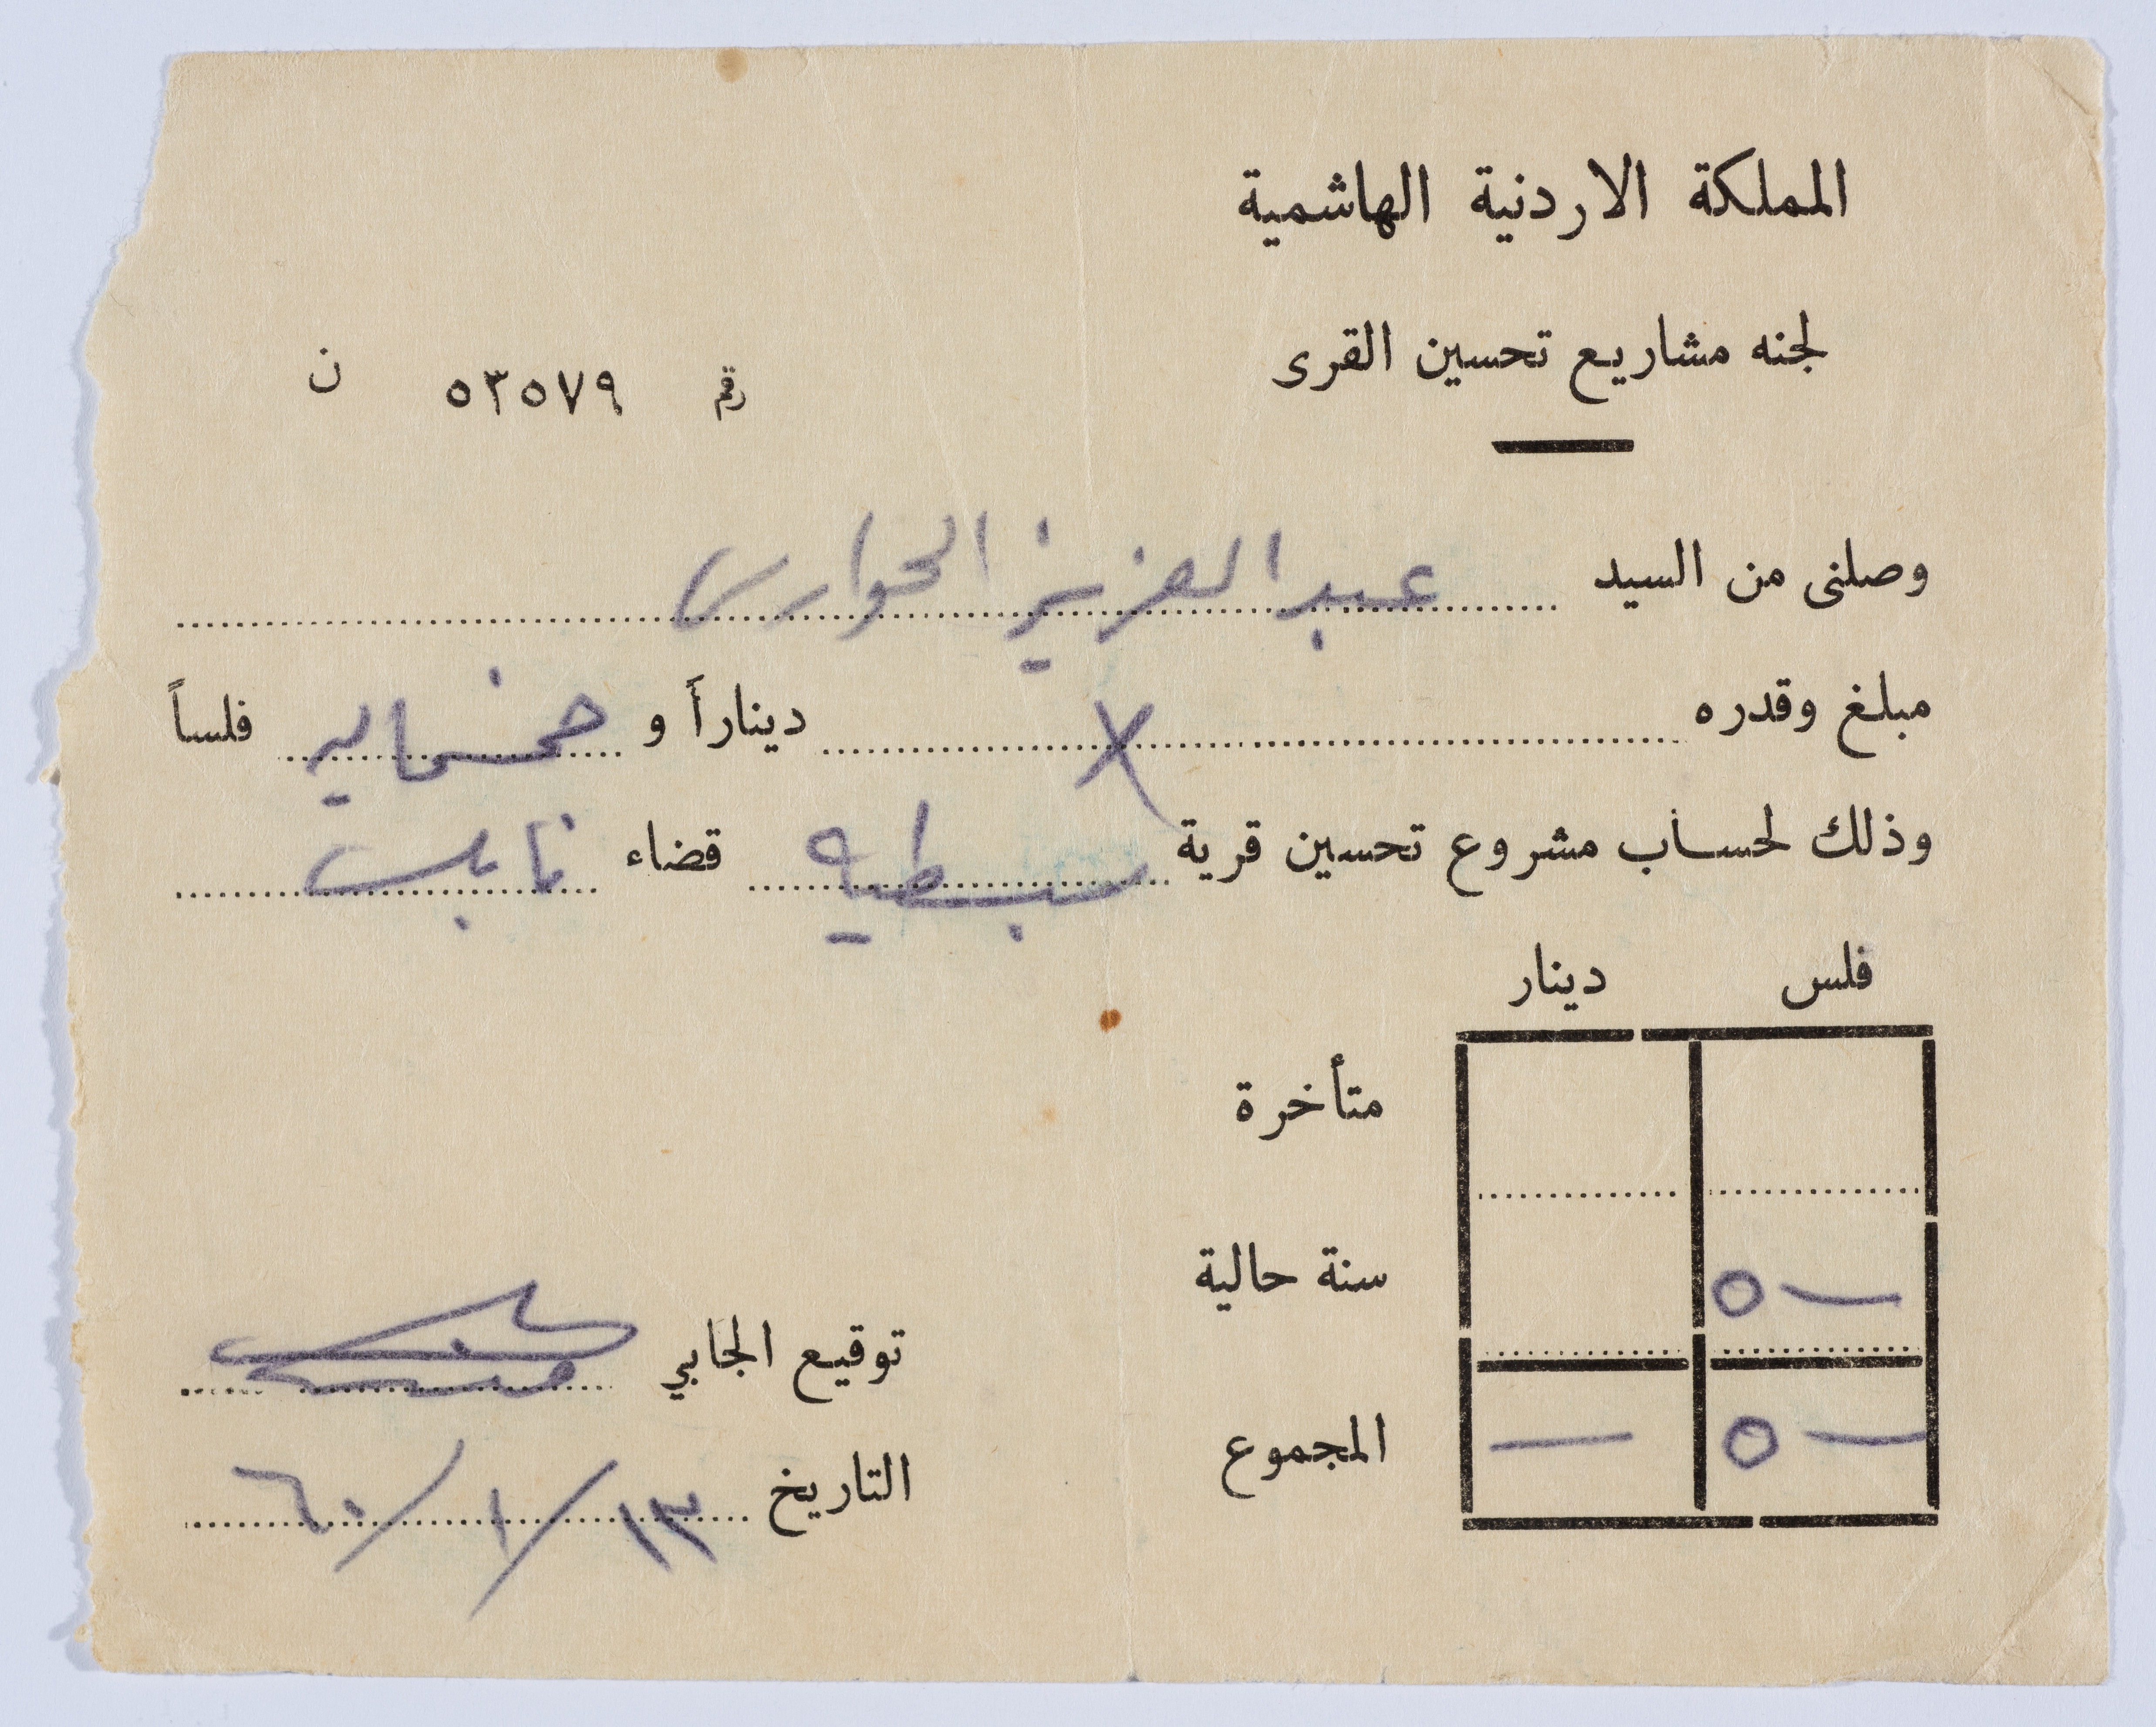 المملكة الاردنية الهاشمية
لجنه مشاريع تحسين القرى
رقم ٥٣٥٧٩ ن
وصلنى من السيد عبد العزيز الحوارى
مبلغ وقدره X ديناراً و خمسمايه فلساً
وذلك لحساب مشروع تحسين قرية سبسطيه قضاء نابلس
فلس دينار
متأخرة
سنة حالية ٥ —
المجموع ٥ — —
توقيع الجابي
التاريخ ١٣/١/٦٠